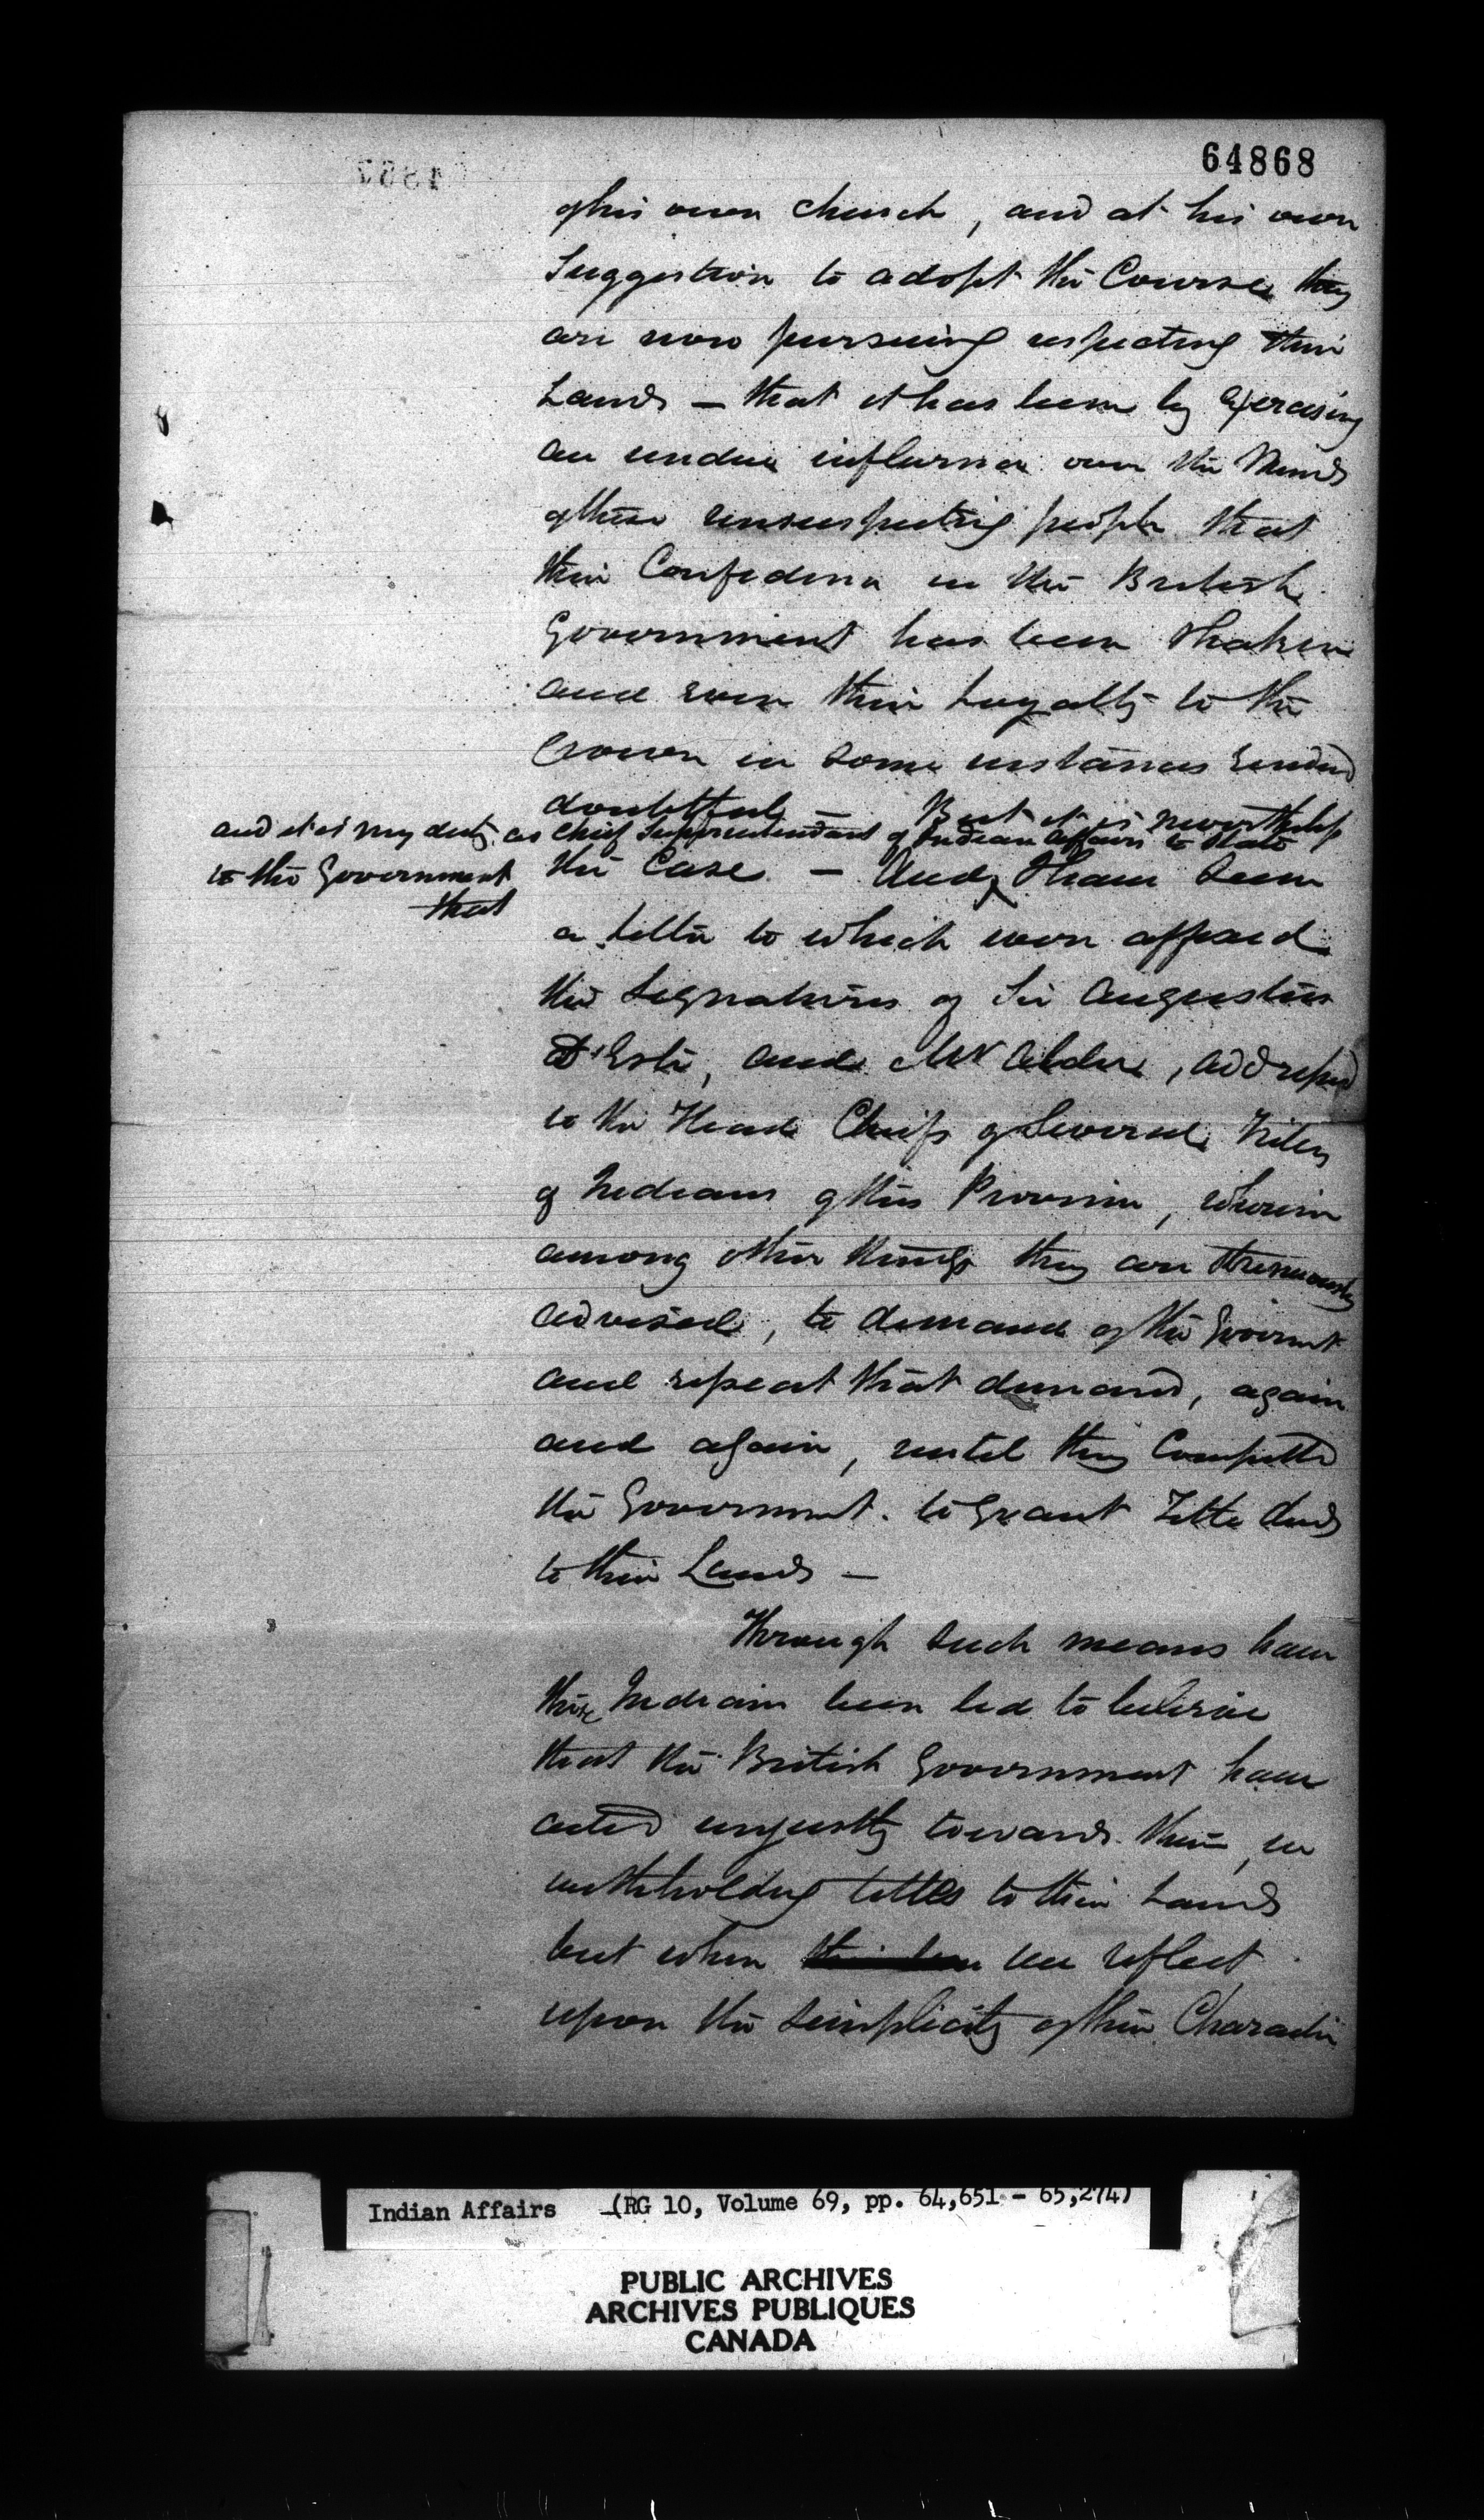 64868
of his own church, and at his own
Suggestion to adopt the Course they
are now pursuing respecting their
Lands — that it has been by exercising
an undue influence over the Minds
of these unsuspecting people that
their Confidence in the British
Government has been shaken
and even their Loyalty to the
Crown in some instances rendered
doubtful — But it is nevertheless
and it is my duty as Chief Superintendent of Indian Affairs to State
to the Government
that
the Case. — And I have seen
a letter to which were affixed
the Signatures of Sir Augustus
d'Este, and Mr Alder, addressed
to the Head Chiefs of Several Tribes
of Indians of this Province, wherein
among other things they are strenuously
advised, to demand of the Governmt
and repeat that demand, again
and again, until they Compelled
the Government. to Grant Title deeds
to their Lands —
Through such means have
these Indians been led to believe
that the British Government have
acted unjustly towards them, in
withholding titles to their Lands
but when we reflect
upon the Simplicity of their Character
Indian Affairs (RG 10, Volume 69, pp. 64,651 - 65,274)
PUBLIC ARCHIVES
ARCHIVES PUBLIQUES
CANADA